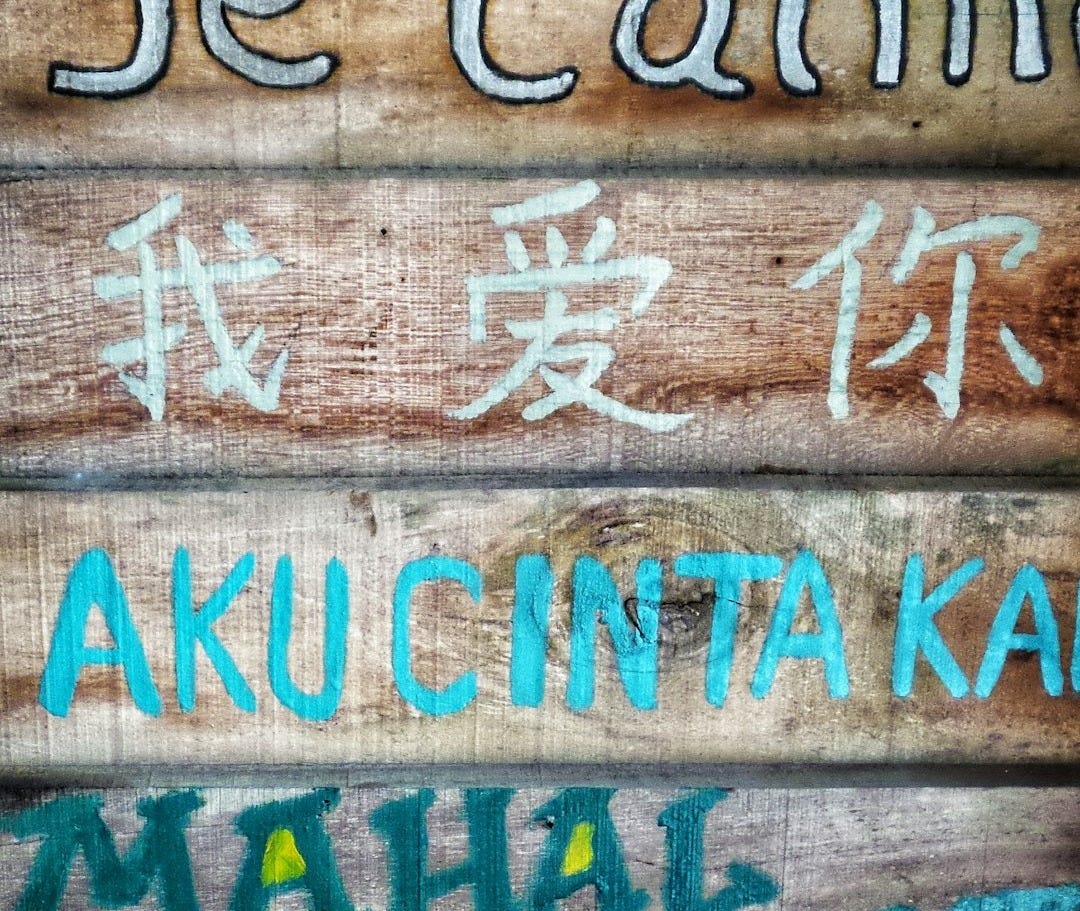 Je taim
我爱你
AKU CINTA KA
MAHAL